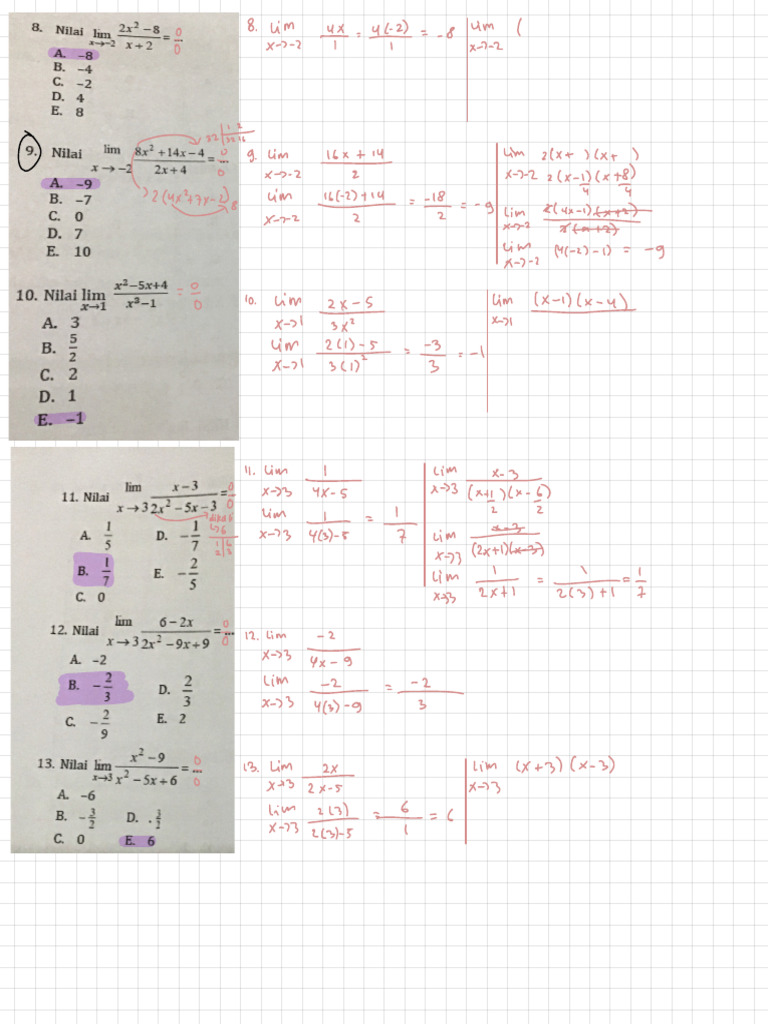 8. Nilai lim x→−2 (2x² − 8)/(x + 2) = 0/0
A. −8
B. −4
C. −2
D. 4
E. 8
8. Lim x→−2 4x/1 = 4(−2)/1 = −8
Lim x→−2 (
9. Nilai lim x → −2 (8x² + 14x − 4)/(2x + 4) = ... 0/0
2(4x² + 7x − 2) 8
A. −9
B. −7
C. 0
D. 7
E. 10
9. Lim x→−2 (16x + 14)/2
Lim x→−2 (16(−2) + 14)/2 = −18/2 = −9
Lim x→−2 2(x+ )(x+ )
2(x−1/4)(x+8/4)
Lim x→−2 2(4x−1)(x+2)/2(x+2)
Lim x→−2 (4(−2)−1) = −9
10. Nilai lim x→1 (x²−5x+4)/(x³−1) = 0/0
A. 3
B. 5/2
C. 2
D. 1
E. −1
10. Lim x→1 (2x − 5)/3x²
Lim x→1 (2(1) − 5)/3(1)² = −3/3 = −1
Lim x→1 (x−1)(x−4)
11. Nilai lim x → 3 (x − 3)/(2x² − 5x − 3) = 0/0
A. 1/5
B. 1/7
C. 0
D. −1/7
E. −2/5
11. Lim x→3 1/(4x−5)
Lim x→3 1/(4(3)−5) = 1/7
Lim x→3 (x−3)/(x+1/2)(x−6/2)
Lim x→3 (x−3)/(2x+1)(x−3)
Lim x→3 1/(2x+1) = 1/(2(3)+1) = 1/7
12. Nilai lim x → 3 (6 − 2x)/(2x² − 9x + 9) = ... 0/0
A. −2
B. −2/3
C. −2/9
D. 2/3
E. 2
12. Lim x→3 −2/(4x − 9)
Lim x→3 −2/(4(3)−9) = −2/3
13. Nilai lim x→3 (x² − 9)/(x² − 5x + 6) = ... 0/0
A. −6
B. −3/2
C. 0
D. .3/2
E. 6
13. Lim x→3 2x/(2x−5)
Lim x→3 2(3)/(2(3)−5) = 6/1 = 6
Lim x→3 (x+3)(x−3)